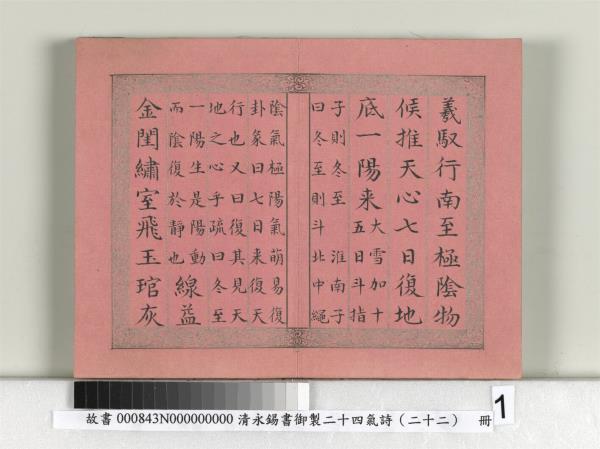 羲馭行南至極陰物
候推天心七日復地
底一陽来
大雪加十
五日斗指
子則冬至 淮南子
曰冬至則斗北中繩
陰氣極陽氣萌易復
卦象曰七日来復天
行也又曰復其見天
地之心乎疏曰冬至
一陽生是陽動
而陰復於靜也
線益
金閨繡室飛玉琯灰
故書 000843N000000000 清永錫書御製二十四氣詩（二十二） 冊
1